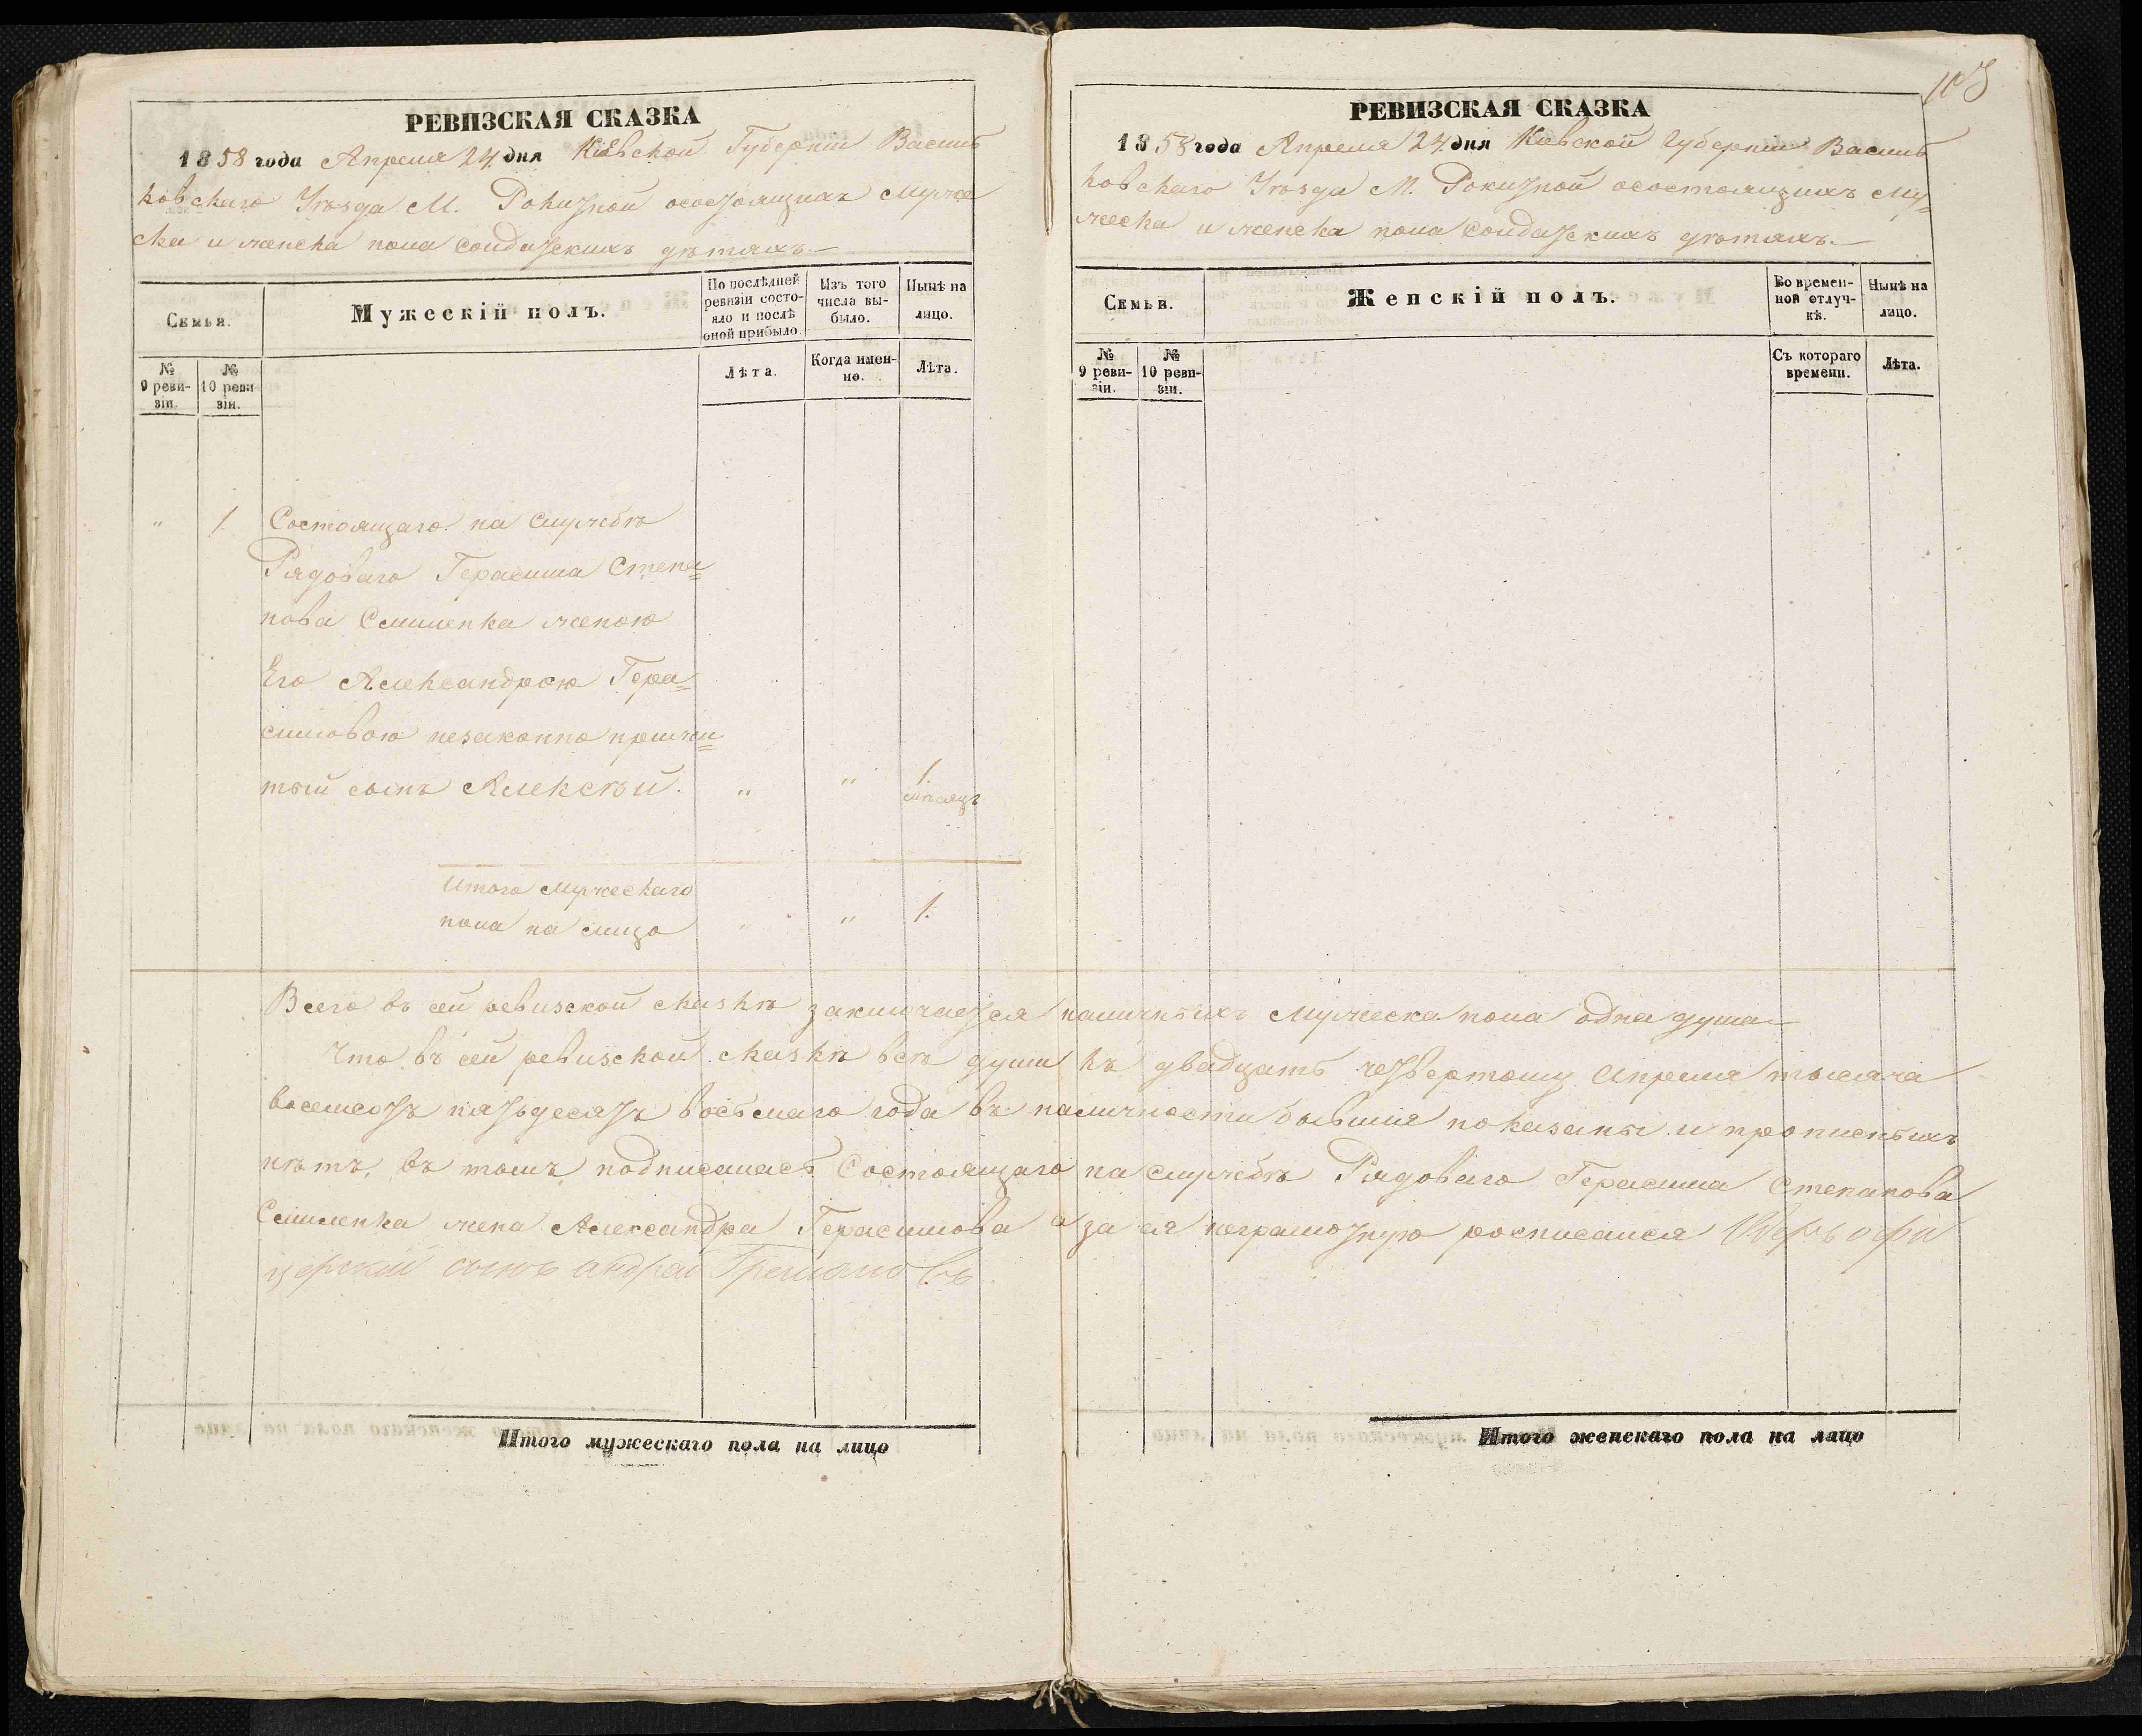 РЕВИЗСКАЯ СКАЗКА
1858 года Апреля 24 дня Кіевской Губерніи Василь
ковскаго Уѣзда М. Рокитной осостоящихъ мужес
ска и женска пола солдатскихъ дѣтяхъ.
Семья.
Мужескій полъ.
По послѣдней ревизіи состояло и послѣ оной прибыло.
Изъ того числа выбыло.
Нынѣ на лицо.
№ 9 ревизіи.
№ 10 ревизіи.
Лѣта.
Когда именно.
Лѣта.
" 1. Состоящаго на службѣ
Рядоваго Герасима Степа=
нова женою
Его Александрою Гера=
симовою незаконно прижи=
тый сынъ Алексѣй. " " 1. мѣсяцъ
Итого мужескаго
пола на лицо " " 1.
Итого мужескаго пола на лицо
103
РЕВИЗСКАЯ СКАЗКА
1858 года Апреля 24 дня Кіевской Губерніи Василь
ковскаго Уѣзда М. Рокитной осостоящихъ му=
жеска и женска пола солдатскихъ дѣтяхъ.
Семья.
Женскій полъ.
Во временной отлучкѣ.
Нынѣ на лицо.
№ 9 ревизіи.
№ 10 ревизіи.
Съ котораго времени.
Лѣта.
Всего въ сей ревизской сказкѣ заключается наличныхъ мужеска пола одна душа
Что въ сей ревизской сказкѣ всѣ души къ двадцать четвертому апреля тысяча
восемсотъ пятьдесятъ восьмаго года въ наличности бывшія показаны и прописныхъ
нѣтъ, въ томъ подписалась Состоящаго на службѣ Рядоваго Герасима Степанова
жена Александра Герасимова а за ея неграмотную росписался Оберъ офи
церскій сынъ андрей
Итого женскаго пола на лицо